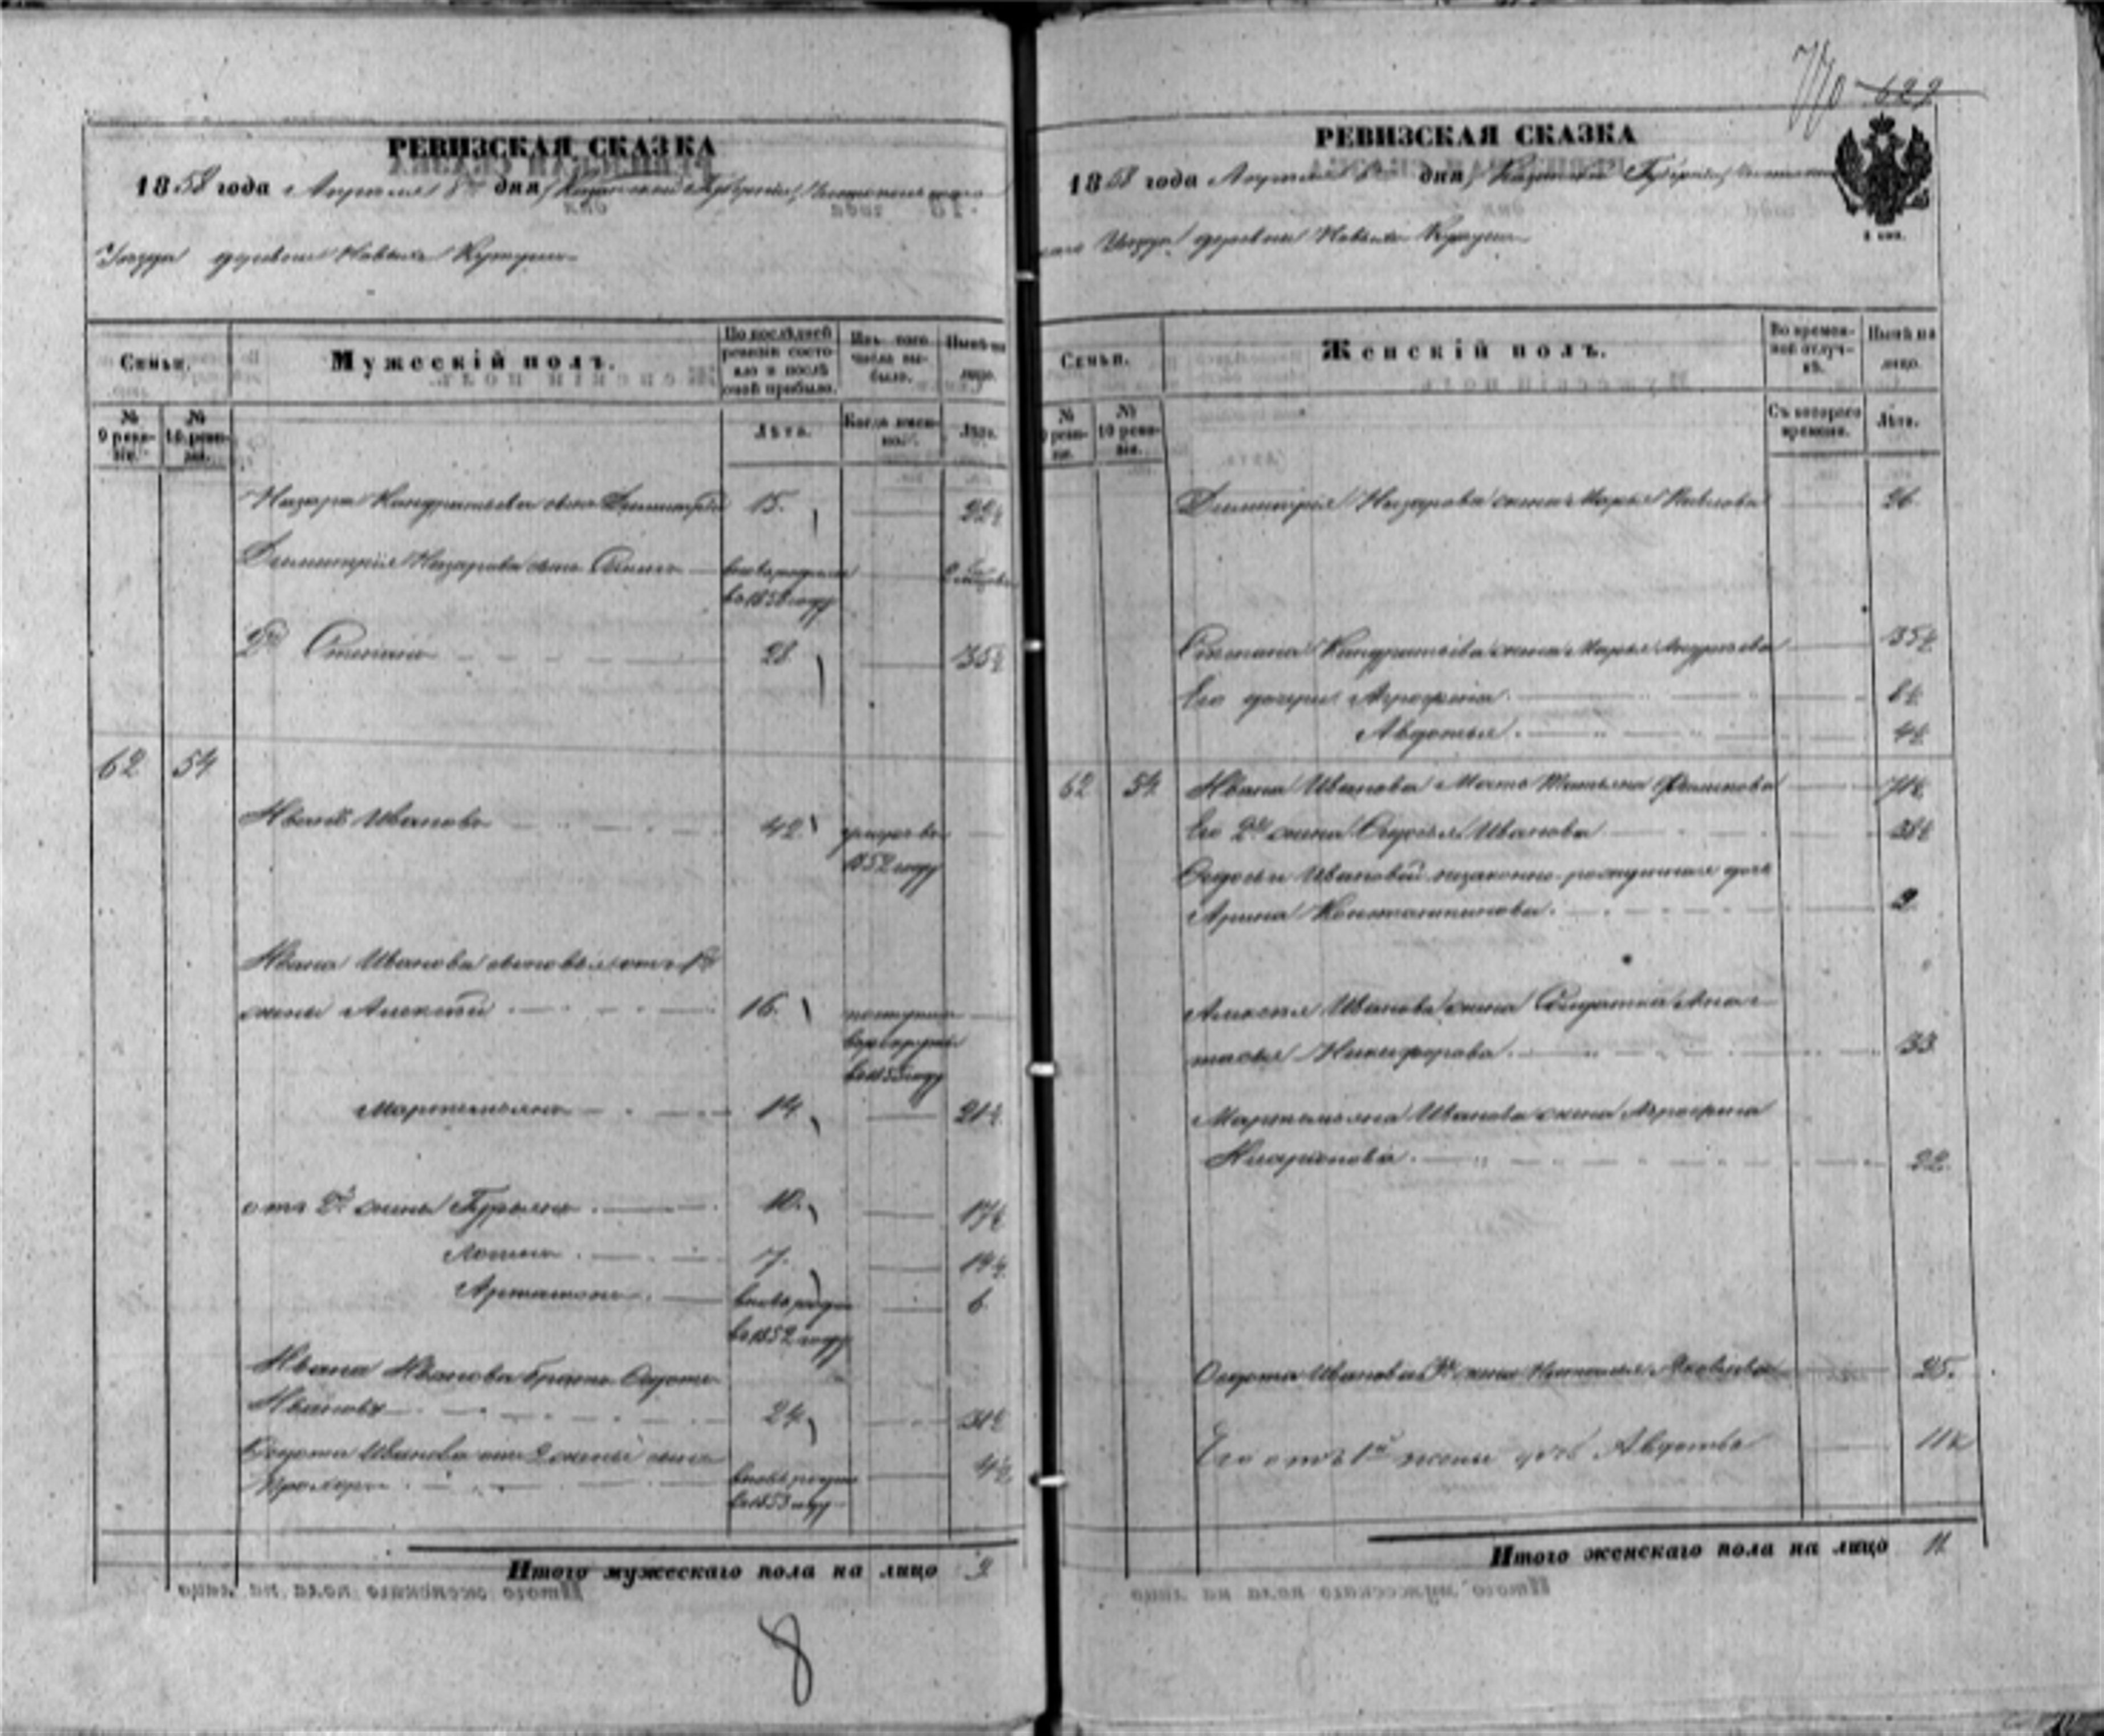 770 622
РЕВИЗСКАЯ СКАЗКА
1858 года Апреля 8го дня Казанской Губернии, Чистопольскаго
Уезда деревни Новыхъ
Семьи.
Мужескій полъ.
По послѣдней ревизіи состояло и послѣ оной прибыло.
Изъ того числа выбыло.
Нынѣ на лицо.
№ 9 ревизіи.
№ 10 ревизіи.
Лѣта.
Когда именно.
Лѣта.
Назара Кандратьева сынъ Димитрій 15. 22½
Димитрія Назарова сынъ вновь рожден
въ 1858 году
2й Степанъ 28 35½
62 54
Иванъ Ивановъ 42 умеръ въ
1852 году
Ивана Иванова сыновья отъ 1й
жены Алексей 16. поступил
въ году
Мартемьянъ 14 21½
отъ 2й жены Гурьянъ 10. 17½
Логинъ 7. 14½
Артамонъ вновь рожден 6
въ 1852 году
Ивана Иванова братъ Федотъ
Ивановъ 24 31½
Федота Иванова отъ 2 жены сынъ
Прохоръ вновь рожден 4½
въ 1853 году
Итого мужескаго пола на лицо 9
8
РЕВИЗСКАЯ СКАЗКА
1858 года Апреля 8го дня Казанской Губернии,
Уезда деревни Новыхъ
Семьи.
Женскій полъ.
Во временной отлучкѣ.
Нынѣ на лицо.
№ 9 ревизіи.
№ 10 ревизіи.
Съ котораго времени.
Лѣта.
Димитрія Назарова жена Марья Павлова 26
Степана Кандратьева жена Марья Андреева 35½
Его дочери Агрофена 8½
Авдотья 4½
62 54 Ивана Иванова Мать Татьяна 71½
Его 2я жена Федосья Иванова 38½
Федосьи Ивановой незаконно рожденная дочь
Арина Константинова. 2
Алексея Иванова жена Солдатка Анас-
тасья Никифорова. 33
Мартемьяна Иванова жена Агрофена
Иларионова. 22.
Федота Иванова 2я жена Наталья Яковлева 25.
Его отъ 1й жены дочь Авдотья 11½
Итого женскаго пола на лицо 11